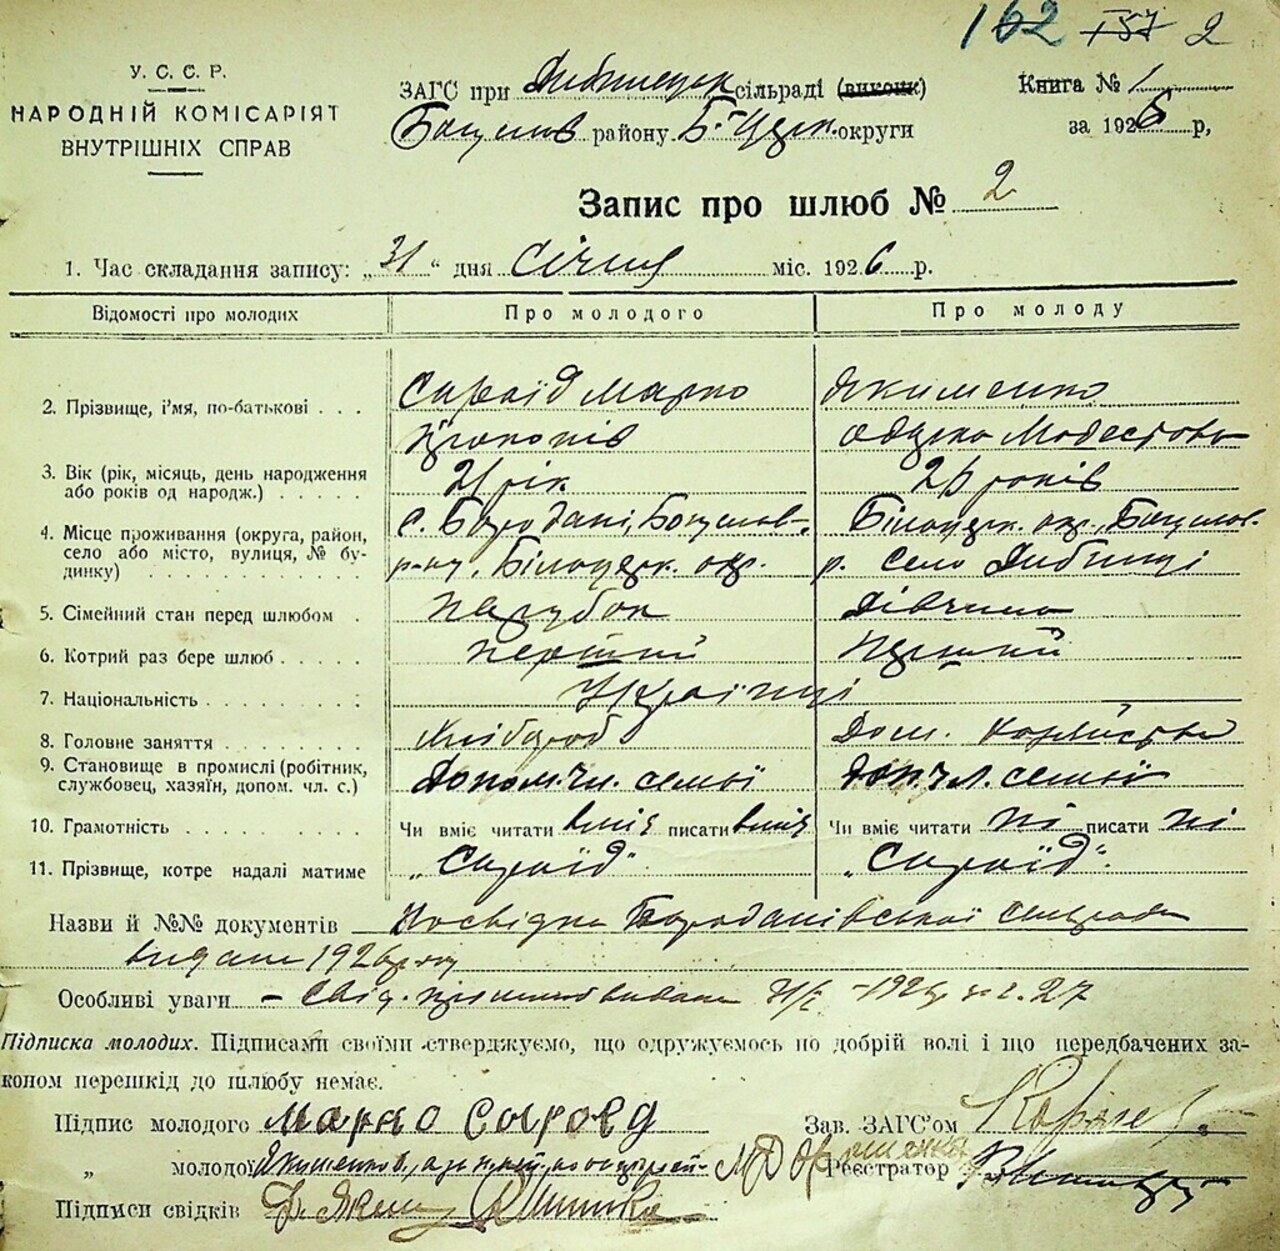 162 157 2
У. С. С. Р.
НАРОДНІЙ КОМІСАРІЯТ
ВНУТРІШНІХ СПРАВ
ЗАГС при сільраді (виконк)
Богуслав району Б-Церк. округи
Книга № 1
за 1926 р,
Запис про шлюб № 2
1. Час складання запису: „31“ дня Січня міс. 1926 р.
Відомості про молодих
Про молодого
Про молоду
2. Прізвище, і’мя, по-батькові . . .
Сараїд Марко
Прокопів
Якименко
Модестовна
3. Вік (рік, місяць, день народження
або років од народж.) . . . . .
21 рік
20 років
4. Місце проживання (округа, район,
село або місто, вулиця, № бу-
динку) . . . . . . . . . . .
с. Бородані, Богуслав-
р-ну, Білоцерк. окр.
Білоцерк. окр., Богуслав.
р. село Дибинці
5. Сімейний стан перед шлюбом .
Парубок
Дівчина
6. Котрий раз бере шлюб . . . . .
Перший
Перший
7. Національність . . . . . . . . .
Українці
8. Головне заняття . . . . . . . .
Хлібороб
Дом.
9. Становище в промислі (робітник,
службовец, хазяїн, допом. чл. с.)
Допом. чл. семьї
Доп. чл. семьї
10. Грамотність . . . . . . . . . .
Чи вміє читати вміє писати вміє
Чи вміє читати ні писати ні
11. Прізвище, котре надалі матиме
„Сараїд“
„Сараїд“.
Назви й №№ документів Посвідка Бороданівської сільради
видана 1926 року
Особливі уваги – Свід. про шлюб видано 1926 р. 27
Підписка молодих. Підписами своїми стверджуємо, що одружуємось по добрій волі і що передбачених за-
коном перешкід до шлюбу немає.
Підпис молодого Марко Сароєд
Зав. ЗАГС’ом
„ молодої Якименкова, а за неї
Реєстратор
Підписи свідків